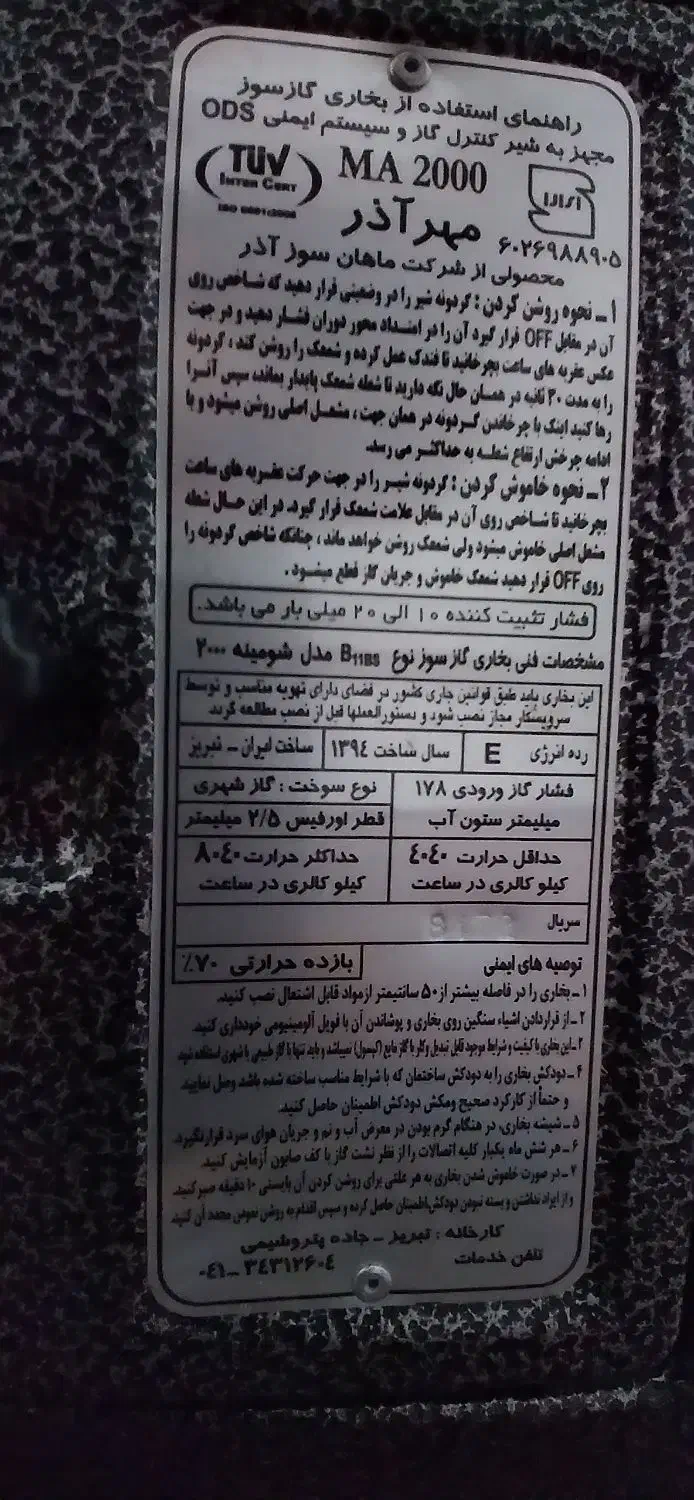 راهنمای استفاده از بخاری گازسوز
مجهز به شیر کنترل گاز و سیستم ایمنی ODS
TÜV
INTER CERT
ISO 9001:2008
MA 2000
مهر آذر
۶۰۲۶۹۸۸۹۰۵
محصولی از شرکت ماهان سوز آذر
۱ــ نحوه روشن کردن : گردونه شیر را در وضعیتی قرار دهید که شاخص روی
آن در مقابل OFF قرار گیرد آن را در امتداد محور دوران فشار دهید و در جهت
عکس عقربه های ساعت بچرخانید تا فندک عمل کرده و شمعک را روشن کند ، گردونه
را به مدت ۳۰ ثانیه در همان حال نگه دارید تا شعله شمعک پایدار بماند، سپس آنرا
رها کنید اینک با چرخاندن گردونه در همان جهت ، مشعل اصلی روشن میشود و با
ادامه چرخش ارتفاع شعله به حداکثر می رسد.
۲ــ نحوه خاموش کردن : گردونه شیر را در جهت حرکت عقربه های ساعت
بچرخانید تا شاخص روی آن در مقابل علامت شمعک قرار گیرد. در این حال شعله
مشعل اصلی خاموش میشود ولی شمعک روشن خواهد ماند ، چنانکه شاخص گردونه را
روی OFF قرار دهید شمعک خاموش و جریان گاز قطع میشود .
فشار تثبیت کننده ۱۰ الی ۲۰ میلی بار می باشد.
مشخصات فنی بخاری گاز سوز نوع B11BS مدل شومینه ۲۰۰۰
این بخاری باید طبق قوانین جاری کشور در فضای دارای تهویه مناسب و توسط
سرویسکار مجاز نصب شود و دستورالعملها قبل از نصب مطالعه گردد
رده انرژی E
سال ساخت ۱۳۹٤
ساخت ایران ــ تبریز
فشار گاز ورودی ۱۷۸
میلیمتر ستون آب
نوع سوخت : گاز شهری
قطر اورفیس ۲/۵ میلیمتر
حداقل حرارت ٤۰٤۰
کیلو کالری در ساعت
حداکثر حرارت ۸۰٤۰
کیلو کالری در ساعت
سریال
توصیه های ایمنی
بازده حرارتی ۷۰٪
۱ــ بخاری را در فاصله بیشتر از ۵۰ سانتیمتر ازمواد قابل اشتعال نصب کنید.
۲ــ از قراردادن اشیاء سنگین روی بخاری و پوشاندن آن با فویل آلومینیومی خودداری کنید.
این بخاری با کیفیت و شرایط موجود قابل تبدیل وکار با گاز مایع (کپسول) نمیباشد و باید تنها با گاز طبیعی یا شهری استفاده شود
۴ــ دودکش بخاری را به دودکش ساختمان که با شرایط مناسب ساخته شده باشد وصل نمایید
و حتماً از کارکرد صحیح ومکش دودکش اطمینان حاصل کنید.
۵ــ شیشه بخاری، در هنگام گرم بودن در معرض آب و نم و جریان هوای سرد قرارنگیرد.
۶ــ هر شش ماه یکبار کلیه اتصالات را از نظر نشت گاز با کف صابون آزمایش کنید.
۷ــ در صورت خاموش شدن بخاری به هر علتی برای روشن کردن آن بایستی ۱۰ دقیقه صبر کنید
و از ایراد نداشتن و بسته نبودن دودکش اطمینان حاصل کرده و سپس اقدام به روشن نمودن مجدد آن کنید
کارخانه : تبریز ــ جاده پتروشیمی
تلفن خدمات ۳٤۳۱۲۶۰٤ ــ ۰٤۱